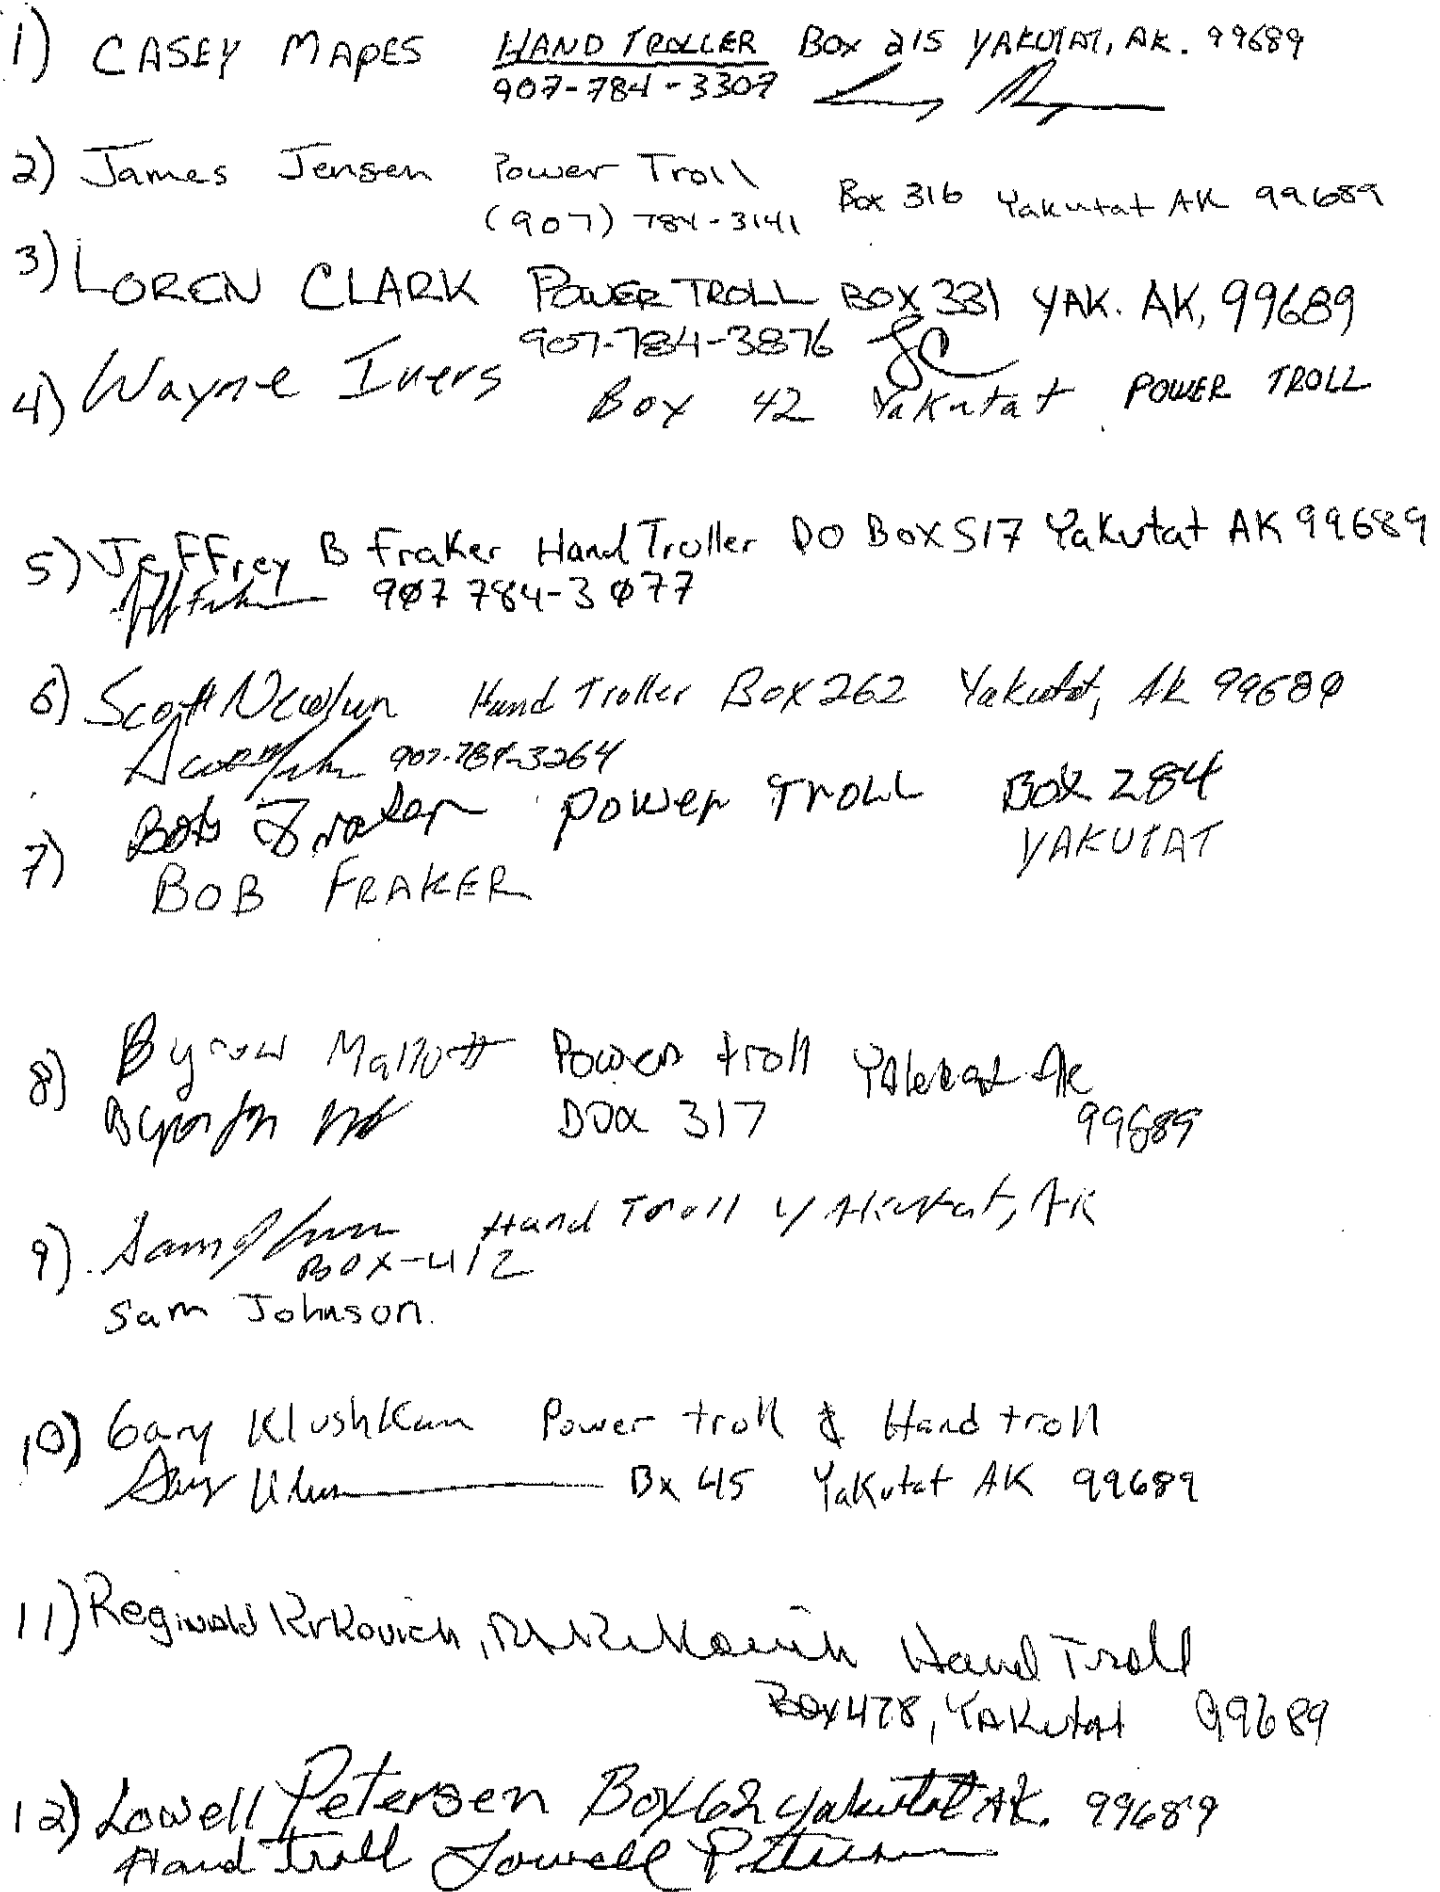 1) CASEY MAPES HAND TROLLER BOX 215 YAKUTAT, AK. 99689
907-784-3307
2) James Jensen Power Troll Box 316 Yakutat AK 99689
(907) 784-3141
3) LOREN CLARK POWER TROLL BOX 331 YAK. AK, 99689
907-784-3876 LC
4) Wayne Ivers Box 42 Yakutat POWER TROLL
5) Jeffrey B Fraker Hand Troller PO Box 517 Yakutat AK 99689
907 784-3077
6) Scott Newlun Hand Troller Box 262 Yakutat, Ak 99689
907-784-3264
7) Bob Fraker Power Troll Box 284
BOB FRAKER YAKUTAT
8) Byron Mallott Power troll Yakutat Ak
Box 317 99689
9) Hand Troll Yakutat, AK
Box-412
Sam Johnson.
10) Gary Klushkan Power troll & Hand troll
Bx 45 Yakutat AK 99689
11) Reginald Krkovich, Hand Troll
Box 478, Yakutat 99689
12) Lowell Petersen Box 62 Yakutat AK. 99689
Hand troll Lowell Petersen